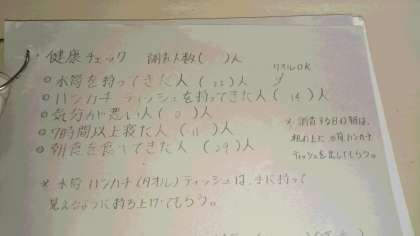 ・健康チェック 調査人数( )人
タオルOK
◎水筒を持ってきた人(22)人
◎ハンカチ ティッシュを持ってきた人(14)人
◎気分が悪い人(0)人
◎7時間以上寝た人(11)人
◎朝食を食べてきた人(29)人
※調査する日の朝は、
机の上に水筒ハンカチ
ティッシュを出してもらう。
※水筒 ハンカチ(タオル)ティッシュは、手に持って
見えるように持ち上げてもらう。